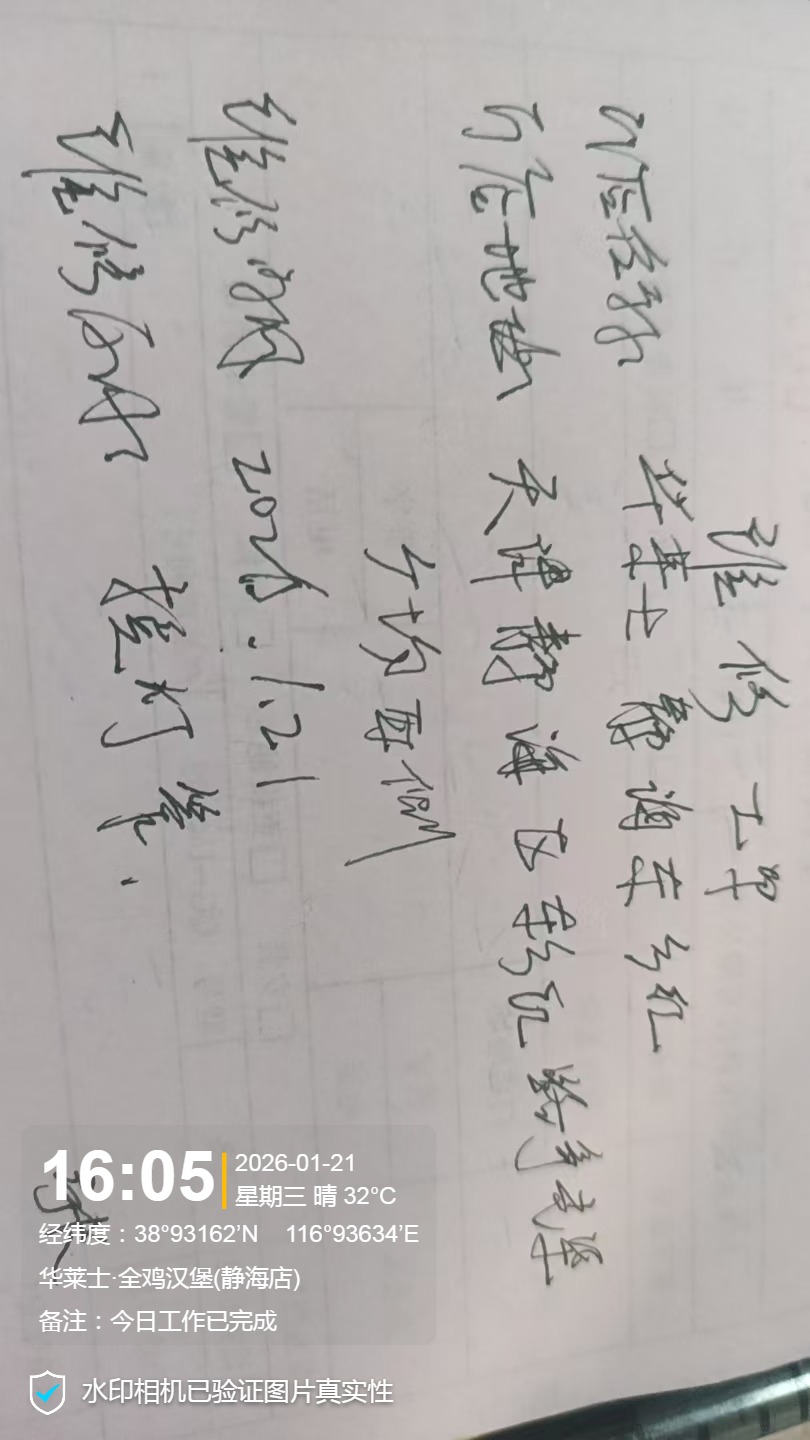 维修工单
门店名称 华莱士静海东方红
门店地址 天津静海区东方红路与
广场西侧
维修时间 2026.1.21
维修内容 挂灯笼.
16:05
2026-01-21
星期三 晴 32°C
经纬度：38°93162'N 116°93634'E
华莱士·全鸡汉堡(静海店)
备注：今日工作已完成
水印相机已验证图片真实性